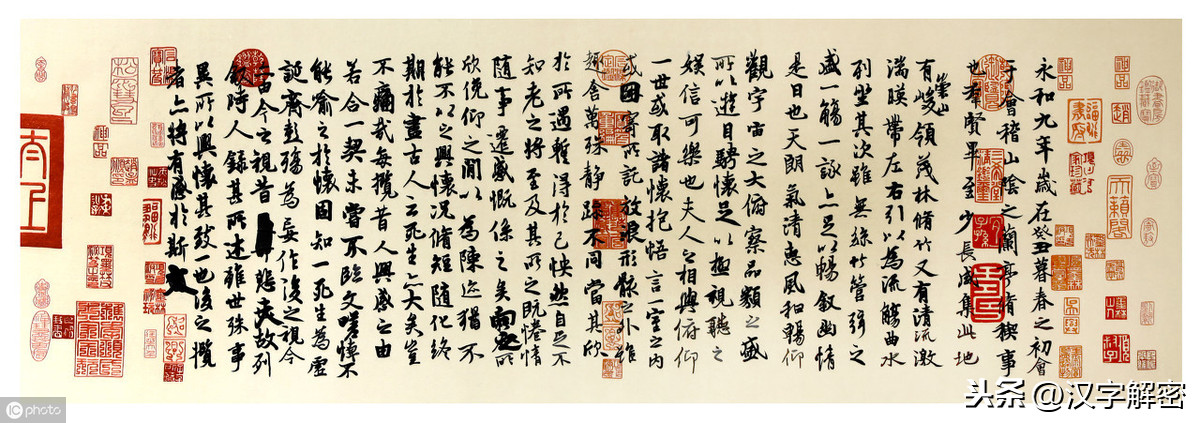 永和九年歲在癸丑暮春之初會
于會稽山陰之蘭亭脩稧事
也羣賢畢至少長咸集此地
有崇山峻領茂林脩竹又有清流激
湍暎帶左右引以為流觴曲水
列坐其次雖無絲竹管弦之
盛一觴一詠亦足以暢敘幽情
是日也天朗氣清惠風和暢仰
觀宇宙之大俯察品類之盛
所以遊目騁懷足以極視聽之
娛信可樂也夫人之相與俯仰
一世或取諸懷抱悟言一室之內
或因寄所託放浪形骸之外雖
趣舍萬殊靜躁不同當其欣
於所遇暫得於己怏然自足不
知老之將至及其所之既惓情
隨事遷感慨係之矣向之所
欣俛仰之閒以為陳迹猶不
能不以之興懷況脩短隨化終
期於盡古人云死生亦大矣豈
不痛哉每攬昔人興感之由
若合一契未嘗不臨文嗟悼不
能喻之於懷固知一死生為虛
誕齊彭殤為妄作後之視今
亦由今之視昔悲夫故列
敘時人錄其所述雖世殊事
異所以興懷其致一也後之攬
者亦將有感於斯文
神品
IC photo
头条 @汉字解密